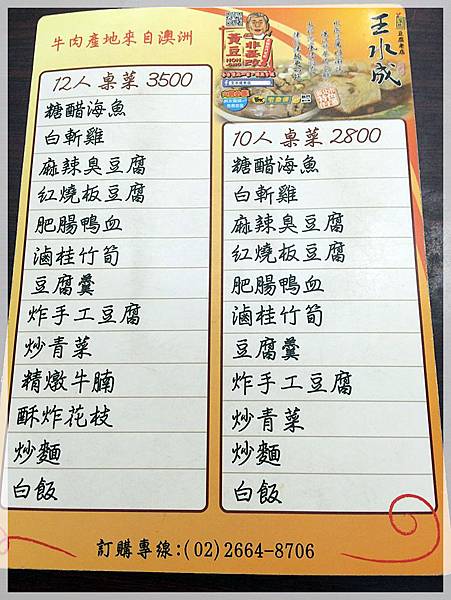 牛肉產地來自澳洲
王水成
豆腐老店
非基改
黃豆
NON
GMO
12人 桌菜 3500
糖醋海魚
白斬雞
麻辣臭豆腐
紅燒板豆腐
肥腸鴨血
滷桂竹筍
豆腐羹
炸手工豆腐
炒青菜
精燉牛腩
酥炸花枝
炒麵
白飯
10人 桌菜 2800
糖醋海魚
白斬雞
麻辣臭豆腐
紅燒板豆腐
肥腸鴨血
滷桂竹筍
豆腐羹
炸手工豆腐
炒青菜
炒麵
白飯
訂購專線:(02)2664-8706